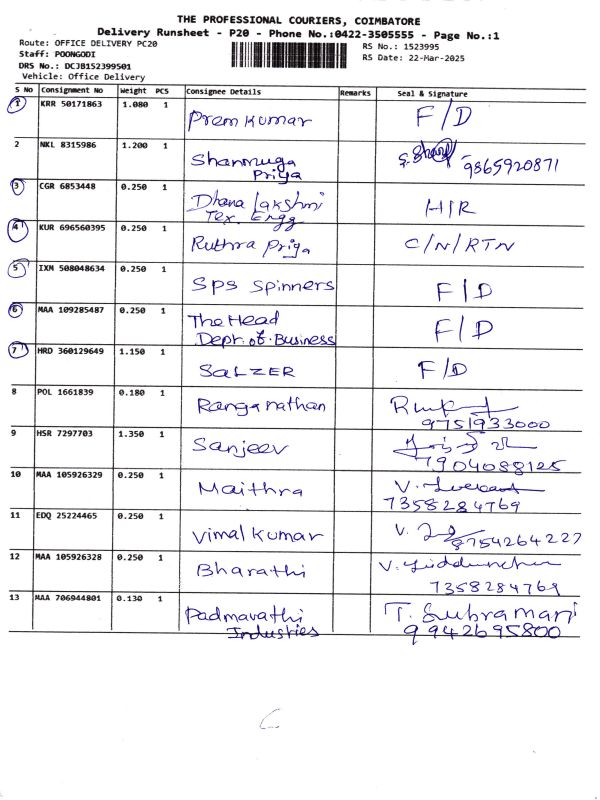 THE PROFESSIONAL COURIERS, COIMBATORE
Delivery Runsheet - P20 - Phone No.:0422-3505555 - Page No.:1
Route: OFFICE DELIVERY PC20
RS No.: 1523995
Staff: POONGODI
RS Date: 22-Mar-2025
DRS No.: DCJB152399501
Vehicle: Office Delivery
S No Consignment No Weight PCS Consignee Details Remarks Seal & Signature
1 KRR 50171863 1.080 1 Prem Kumar F/D
2 NKL 8315986 1.200 1 Shanmuga
Priya 9865920871
3 CGR 6853448 0.250 1 Dhana Lakshmi
Tex. Engg H/R
4 KUR 696560395 0.250 1 Ruthra Priya C/N/RTN
5 IXM 508048634 0.250 1 Sps Spinners F/D
6 MAA 109285487 0.250 1 The Head
Dept. of. Business F/D
7 HRD 360129649 1.150 1 SALZER F/D
8 POL 1661839 0.180 1 Ranganathan
9751933000
9 HSR 7297703 1.350 1 Sanjeev
7904088125
10 MAA 105926329 0.250 1 Maithra V.
7358284769
11 EDQ 25224465 0.250 1 Vimal Kumar V.
8754264227
12 MAA 105926328 0.250 1 Bharathi V.
7358284769
13 MAA 706944801 0.130 1 Padmavathi T. Subramani
Industries 9942695800